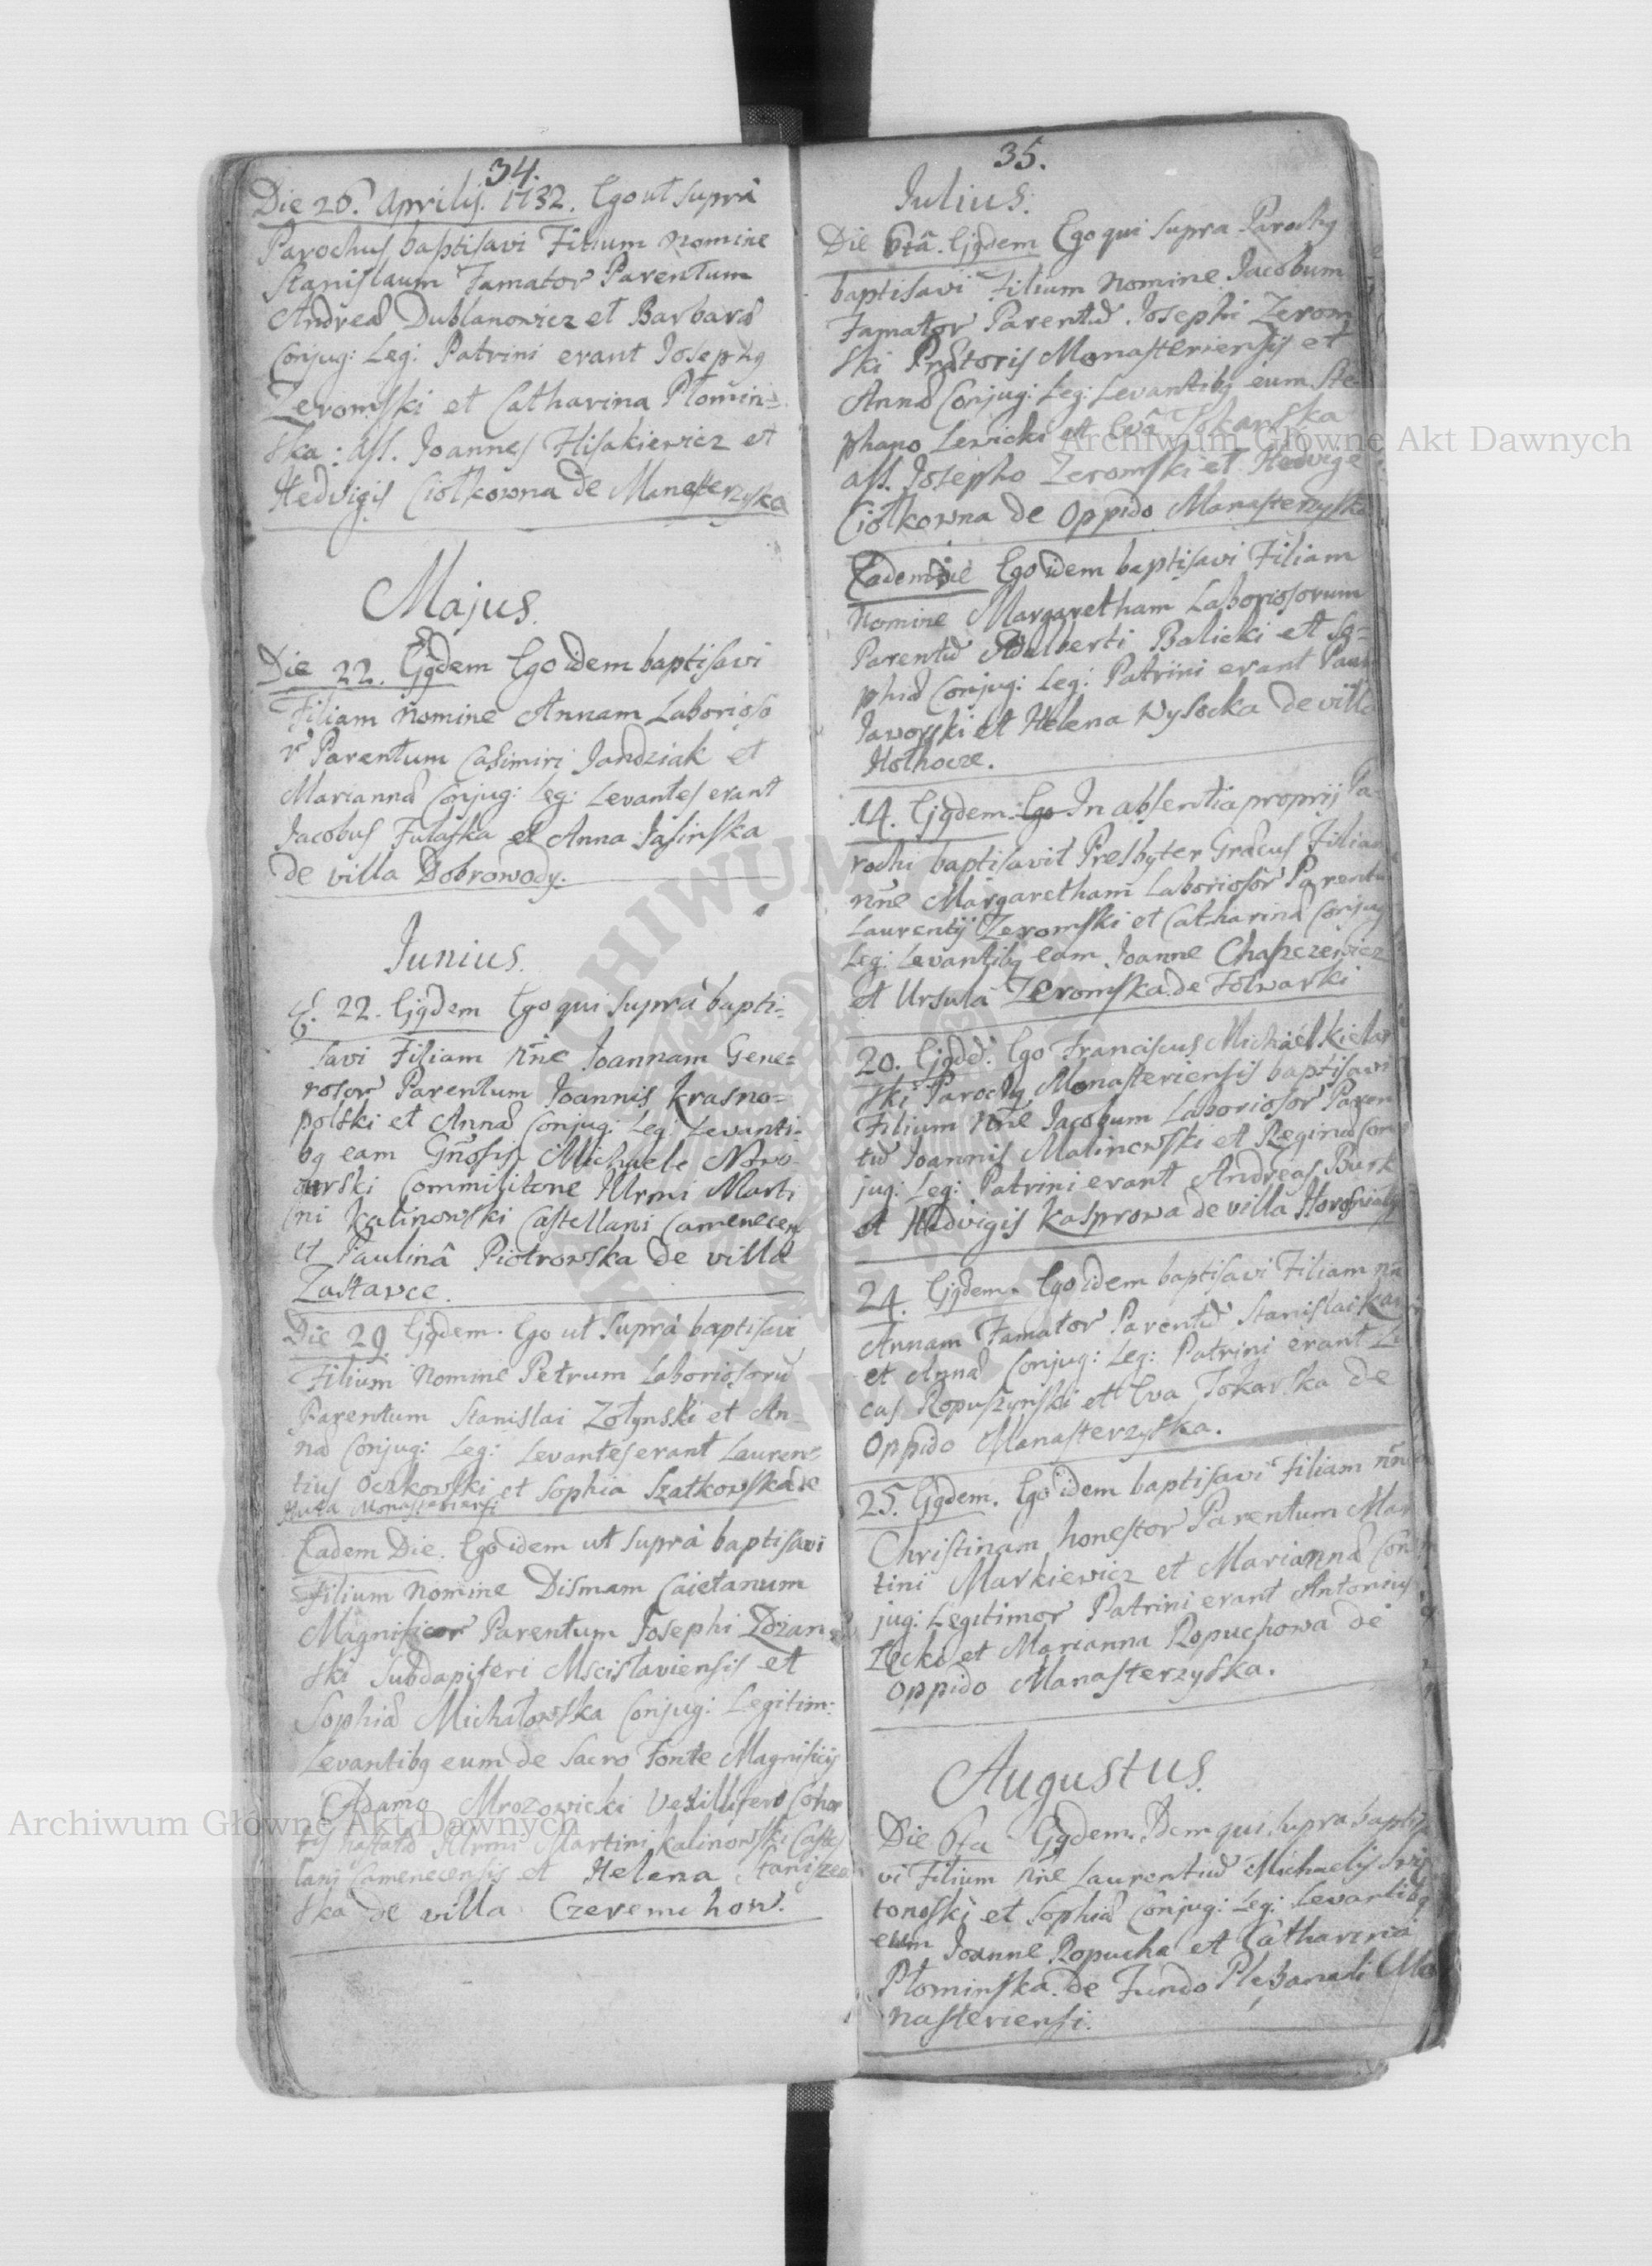 34.
Die 26. Aprilis. 1732. Ego ut supra
Parochus baptisavi Filium nomine
Stanislaum Famator Parentum
Andreæ Dublanowicz et Barbaræ
Conjug: Leg: Patrini erant Josephq
Zeromski et Catharina Płomin=
ska: ass. Joannes Hisakiewicz et
Hedvigis Ciołkowna de Manasterzyska
Majus.
Die 22. Ejqdem Ego idem baptisavi
Filiam nomine Annam Laborioso
r Parentum Casimiri Jandziak et
Mariannæ Conjug: Leg: Levantes erant
Jacobus Fulaska et Anna Jasinska
de villa Dobrowody.
Junius.
E. 22. Ejqdem Ego qui supra bapti=
savi Filiam nne Joannam Gene=
rosor Parentum Joannis Krasno=
polski et Annæ Conjug: Leg: Levanti=
bq eam Gnosis Michaele
Commilitone Illrmi Marti
ni Kalinowski Castellani Camenecen
et Paulinâ Piotrowska de villa
Zastavce.
Die 29. Ejqdem. Ego ut supra baptisavi
Filium Nomine Petrum Laboriosorū
Parentum Stanislai Zołynski et An=
næ Conjug: Leg: Levantes erant Lauren=
tius Oczkowski et Sophia Szatkowska de
Huta Monasteriensi
Eadem Die. Ego idem ut supra baptisavi
Filium Nomine Dismam Caietanum
Magnificor Parentum Josephi Zdzan
ski Subdapiferi Mscislaviensis et
Sophiæ Michałowska Conjug: Legitim:
Levantibq eum de Sacro Fonte Magnificis
Adamo Mrozowicki Vexillifero Cohor
tis hastatæ Illrmi Martini Kalinowski Castel
lani Camenecensis et Helena
ska de villa Czeremchow.
35.
Julius.
Die 6tâ. Ejqdem Ego qui supra Parochq
baptisavi Filium Nomine Jacobum
Famator Parentū Josephi Zerom
ski Prætoris Monasteriensis et
Annæ Conjug: Leg: Levantibq eum Ste
phano Levicki et Evâ Tokarska
ass. Josepho Zeromski et Hedvige
Ciołkowna de Oppido Manasterzyska
Eadem Die Ego idem baptisavi Filiam
Nomine Margaretham Laboriosorum
Parentū Adalberti Balicki et So=
phiæ Conjug: Leg: Patrini erant Paul
Jaworski et Helena Wysocka de villa
Hołhocze.
14. Ejqdem. Ego In absentia proprij Pa
rochi baptisavit Presbyter Græcus Filiam
nne Margaretham Laboriosor Parentu
Laurentij Zeromski et Catharinæ Conjug
Leg: Levantibq eam Joanne Chaszczewicz
et Ursula Zeromska de Folwarki
20. Ejqdē. Ego Franciscus Michael Kielar
ski Parochq Monasteriensis baptisavi
Filium Nne Jacobum Laboriosor Paren
tū Joannis Malinowski et Reginæ Con
jug: Leg: Patrini erant Andreas Burk
et Hedvigis Kasprowa de villa
24. Ejqdem. Ego idem baptisavi Filiam nn
Annam Famator Parentū Stanislai
et Annæ Conjug: Leg: Patrini erant Lu
cas Ropuszynski et Eva Tokarska de
Oppido Manasterzyska.
25. Ejqdem. Ego idem baptisavi Filiam nn
Christinam honestor Parentum Mar
tini Markiewicz et Mariannæ Con
jug: Legitimor Patrini erant Antonius
et Marianna Ropuchowa de
Oppido Manasterzyska.
Augustus.
Die 6ta Ejqdem. Idem qui supra baptisa
vi Filium Nne Laurentiū Michaelis
et Sophiæ Conjug: Leg: Levantibq
eum Joanne Ropucha et Catharina
Płominska. de Fundo Plebanali Mo
nasteriensi.
Archiwum Główne Akt Dawnych
Archiwum Główne Akt Dawnych